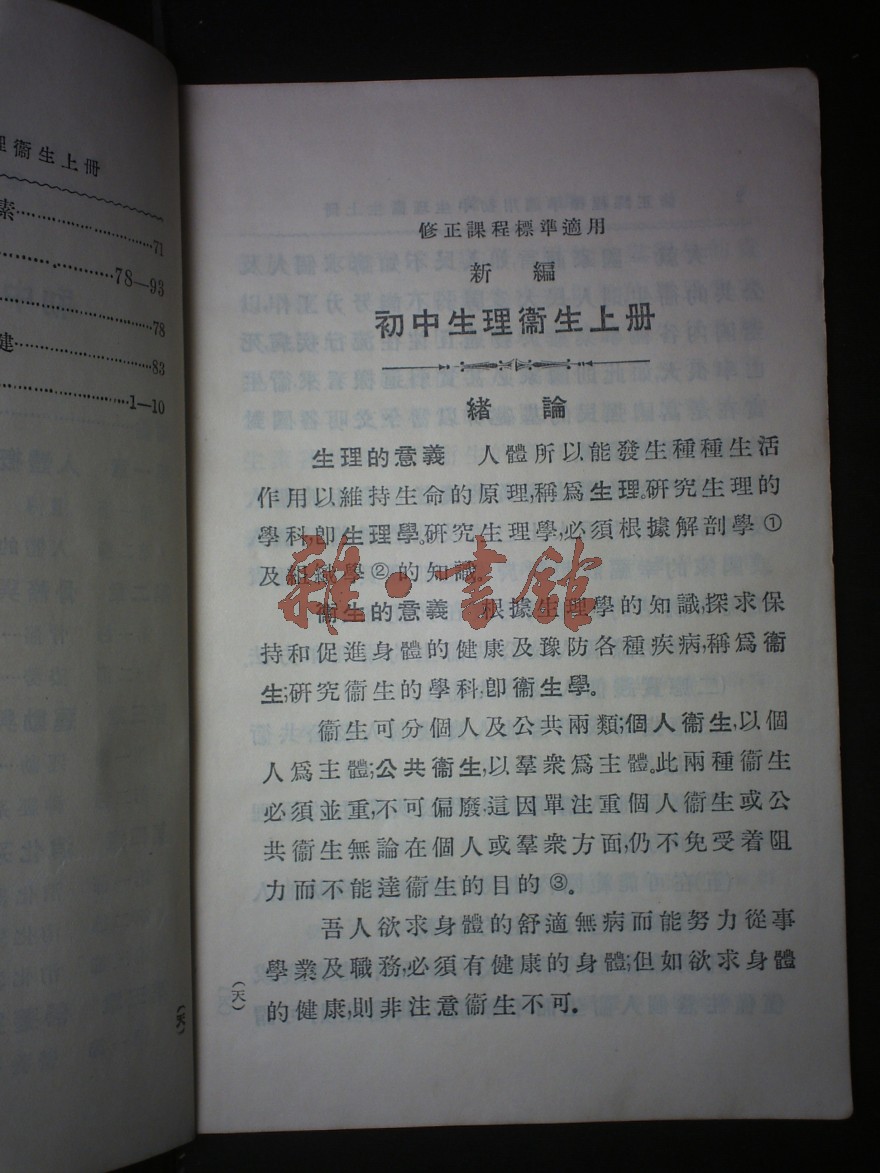 理衞生上册
素……71
……78—93
……78
建……83
……1—10
修正課程標準適用
新編
初中生理衞生上册
緒論
生理的意義 人體所以能發生種種生活
作用以維持生命的原理,稱爲生理。研究生理的
學科,卽生理學。研究生理學,必須根據解剖學①
及組織學②的知識。
衞生的意義 根據生理學的知識,探求保
持和促進身體的健康及豫防各種疾病,稱爲衞
生;研究衞生的學科,卽衞生學。
衞生可分個人及公共兩類;個人衞生,以個
人爲主體;公共衞生,以羣衆爲主體。此兩種衞生
必須並重,不可偏廢。這因單注重個人衞生或公
共衞生無論在個人或羣衆方面,仍不免受着阻
力而不能達衞生的目的③。
吾人欲求身體的舒適無病而能努力從事
學業及職務,必須有健康的身體;但如欲求身體
的健康,則非注意衞生不可。
(天)
雜·書館